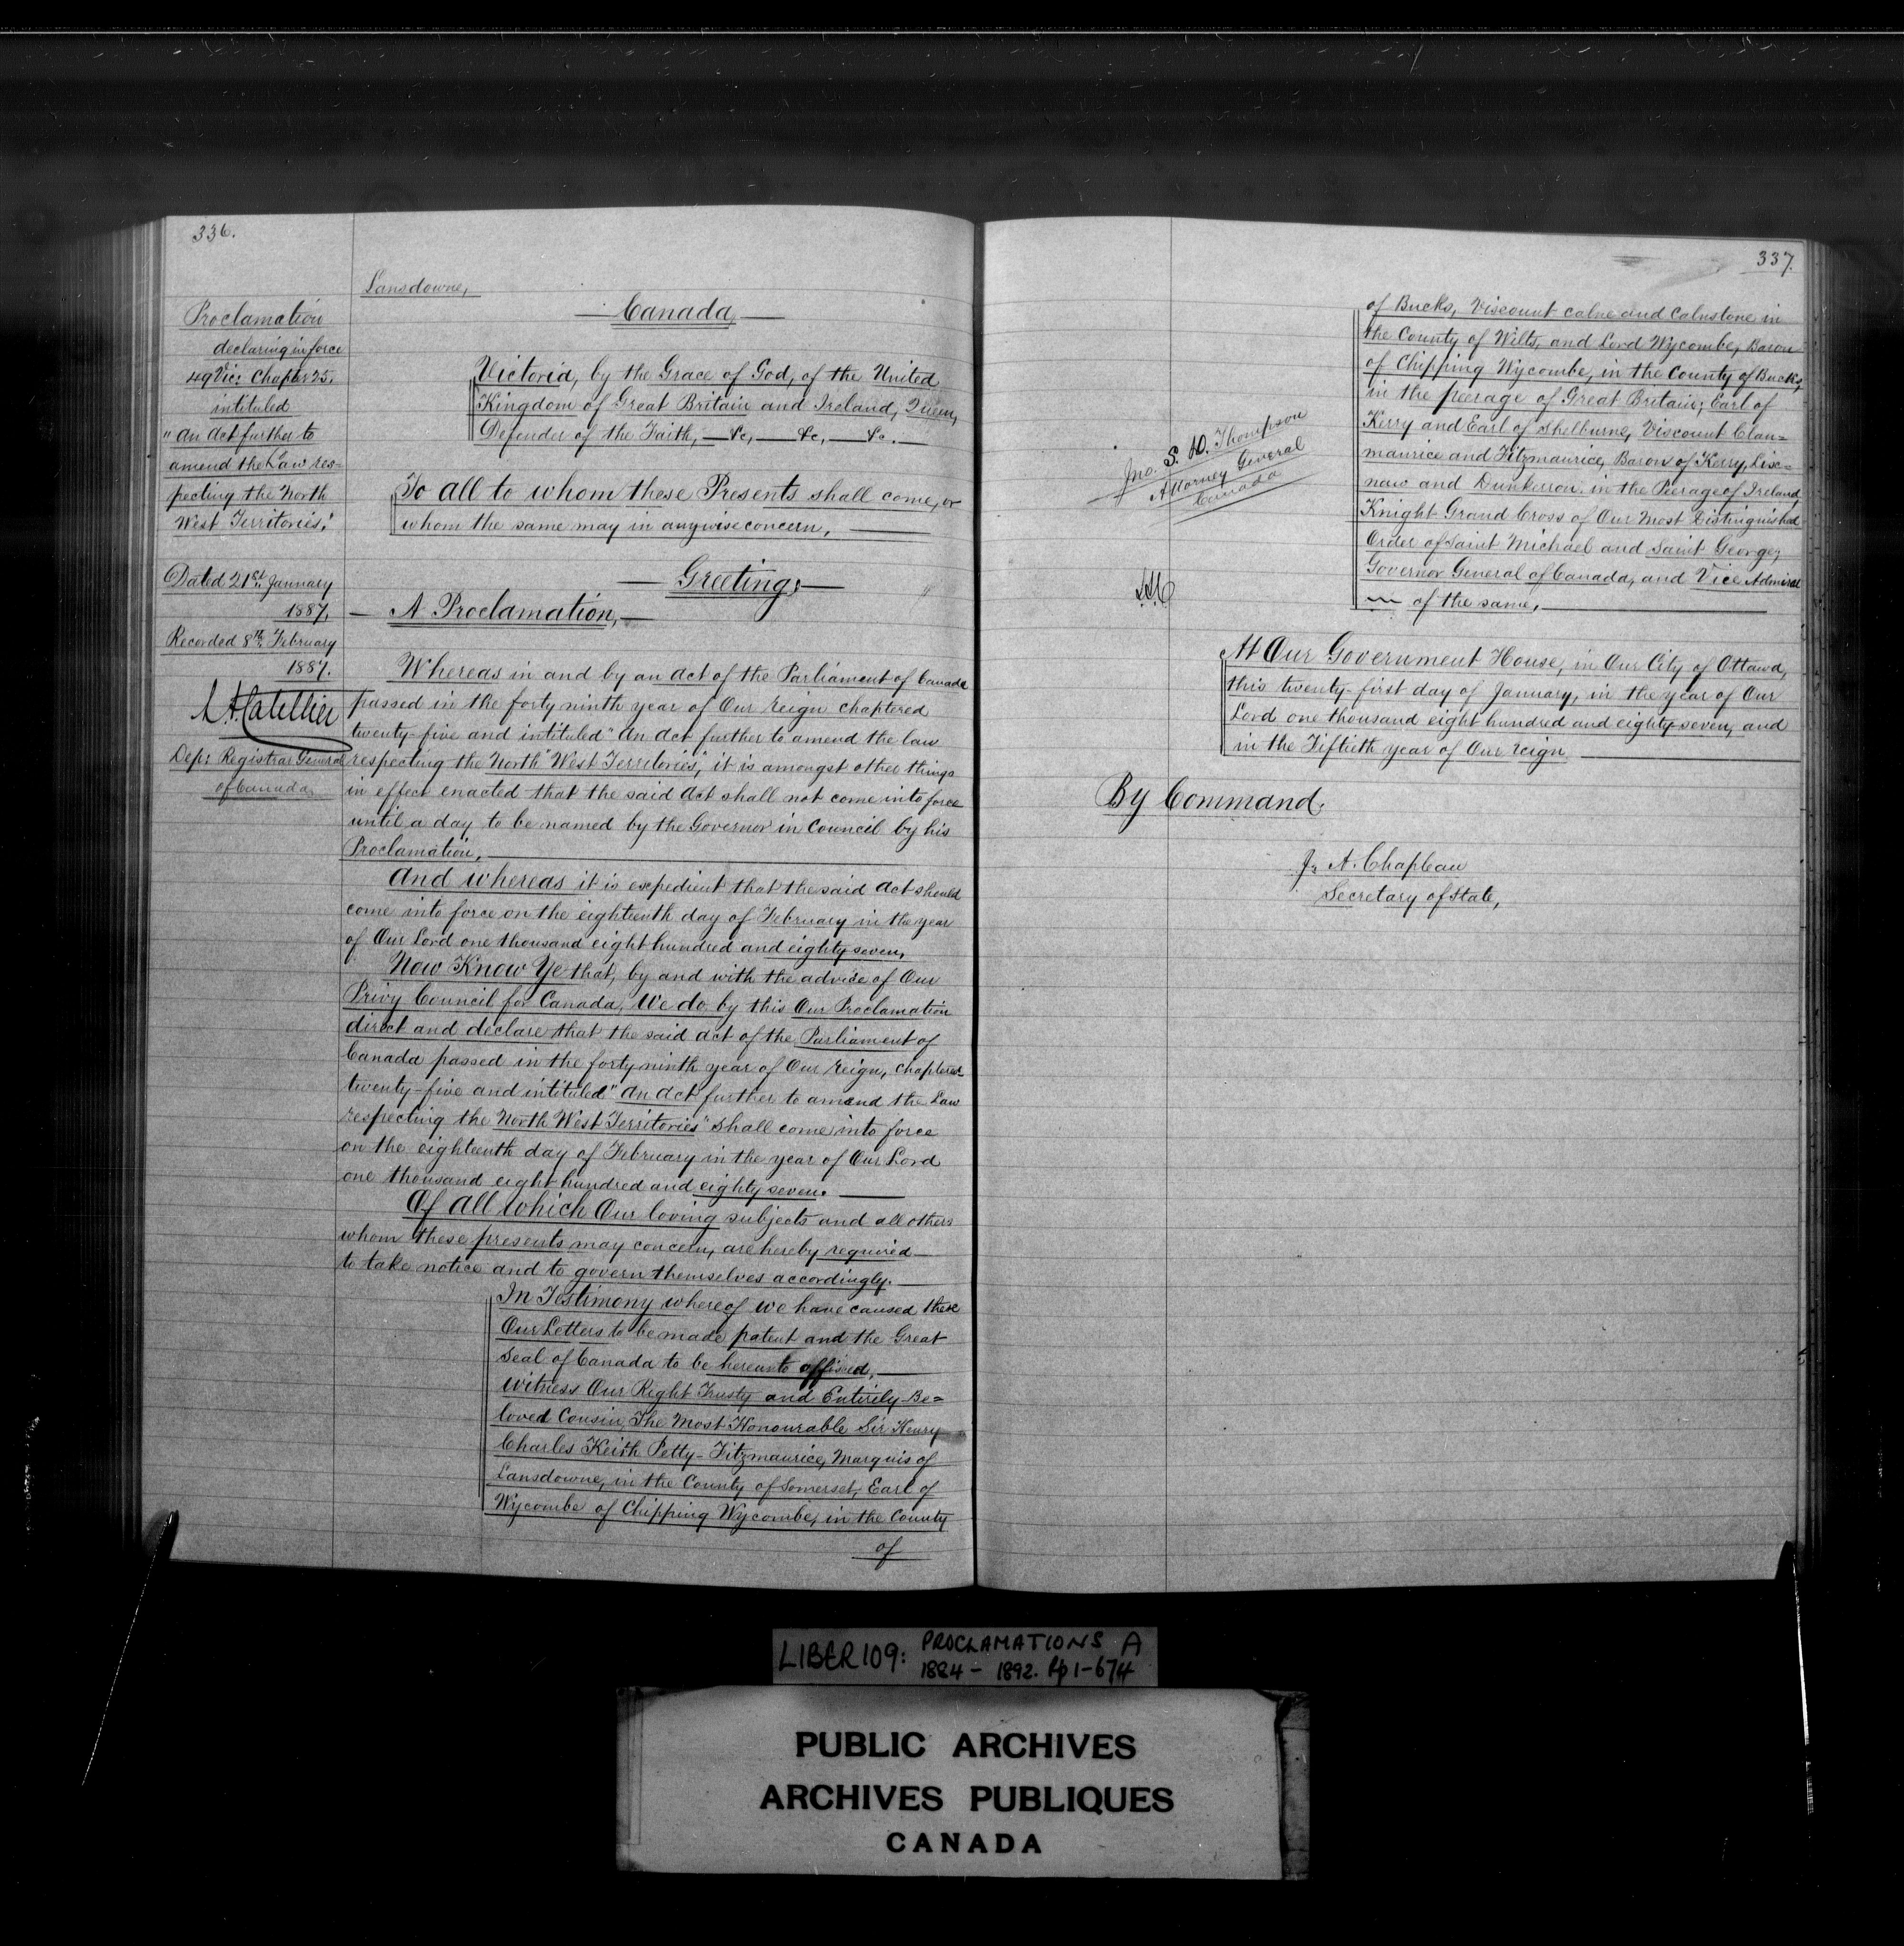 336.
Proclamation
declaring in force
49 Vic: Chapter 25.
intituled
"An Act further to
amend the Law res=
pecting the North
West Territories."
Dated 21st January
1887.
Recorded 8th February
1887.
Dep: Registrar General
of Canada
Lansdowne,
Canada
Victoria, by the Grace of God, of the United
Kingdom of Great Britain and Ireland, Queen,
Defender of the Faith, — &c, — &c, — &c. —
To all to whom these Presents shall come, or
whom the same may in anywise concern,
— Greeting: —
— A Proclamation, —
Whereas in and by an Act of the Parliament of Canada
passed in the forty ninth year of Our reign chaptered
twenty-five and intituled "An Act further to amend the law
respecting the North West Territories", it is amongst other things
in effect enacted that the said Act shall not come into force
until a day to be named by the Governor in Council by his
Proclamation,
And whereas it is expedient that the said Act should
come into force on the eighteenth day of February in the year
of Our Lord one thousand eight hundred and eighty seven,
Now Know Ye that, by and with the advice of Our
Privy Council for Canada, We do by this Our Proclamation
direct and declare that the said Act of the Parliament of
Canada passed in the forty ninth year of Our reign, chaptered
twenty-five and intituled "An Act further to amend the Law
respecting the North West Territories" shall come into force
on the eighteenth day of February in the year of Our Lord
one thousand eight hundred and eighty seven.
Of all which Our loving subjects and all others
whom these presents may concern, are hereby required
to take notice and to govern themselves accordingly.
In Testimony whereof we have caused these
Our Letters to be made patent and the Great
Seal of Canada to be hereunto affixed,
Witness Our Right Trusty and Entirely Be=
loved Cousin, The Most Honourable Sir Henry
Charles Keith Petty-Fitzmaurice, Marquis of
Lansdowne, in the County of Somerset, Earl of
Wycombe of Chipping Wycombe, in the County
of
337.
of Bucks, Viscount Calne and Calnstone in
the County of Wilts, and Lord Wycombe, Baron
of Chipping Wycombe, in the County of Bucks,
in the peerage of Great Britain; Earl of
Kerry and Earl of Shelburne, Viscount Clan=
maurice and Fitzmaurice, Baron of Kerry, Lix=
naw and Dunkerron in the Peerage of Ireland,
Knight Grand Cross of Our Most Distinguished
Order of Saint Michael and Saint George;
Governor General of Canada, and Vice Admiral
of the same,
Jno. S. D. Thompson
Attorney General
Canada
At Our Government House, in Our City of Ottawa,
this twenty-first day of January, in the year of Our
Lord one thousand eight hundred and eighty-seven, and
in the Fiftieth year of Our reign
By Command.
J. A. Chapleau
Secretary of State,
LIBER 109: PROCLAMATIONS A
1884 – 1892. Pp 1-674
PUBLIC ARCHIVES
ARCHIVES PUBLIQUES
CANADA